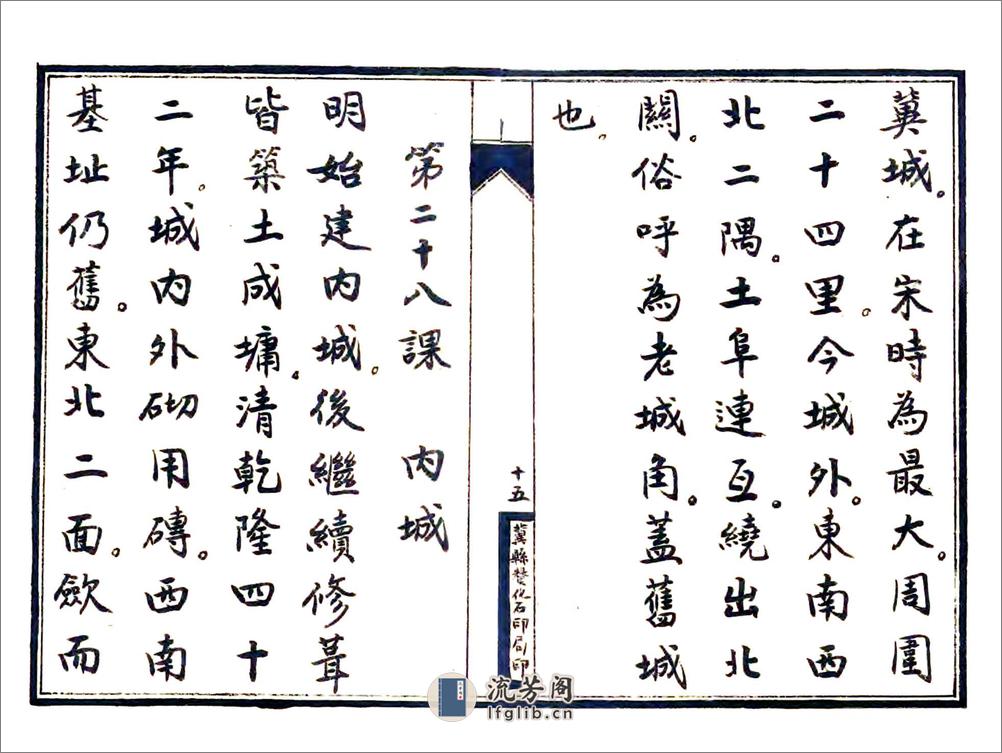 冀城。在宋時為最大。周圍
二十四里。今城外。東南西
北二隅。土阜連亙。繞出北
關。俗呼為老城角。蓋舊城
也。
十五
冀縣贊化石印局印
第二十八課　內城
明始建內城。後繼續修葺
皆築土成墉。清乾隆四十
二年。城內外砌用磚。西南
基址仍舊。東北二面。歛而
流芳阁
lfglib.cn